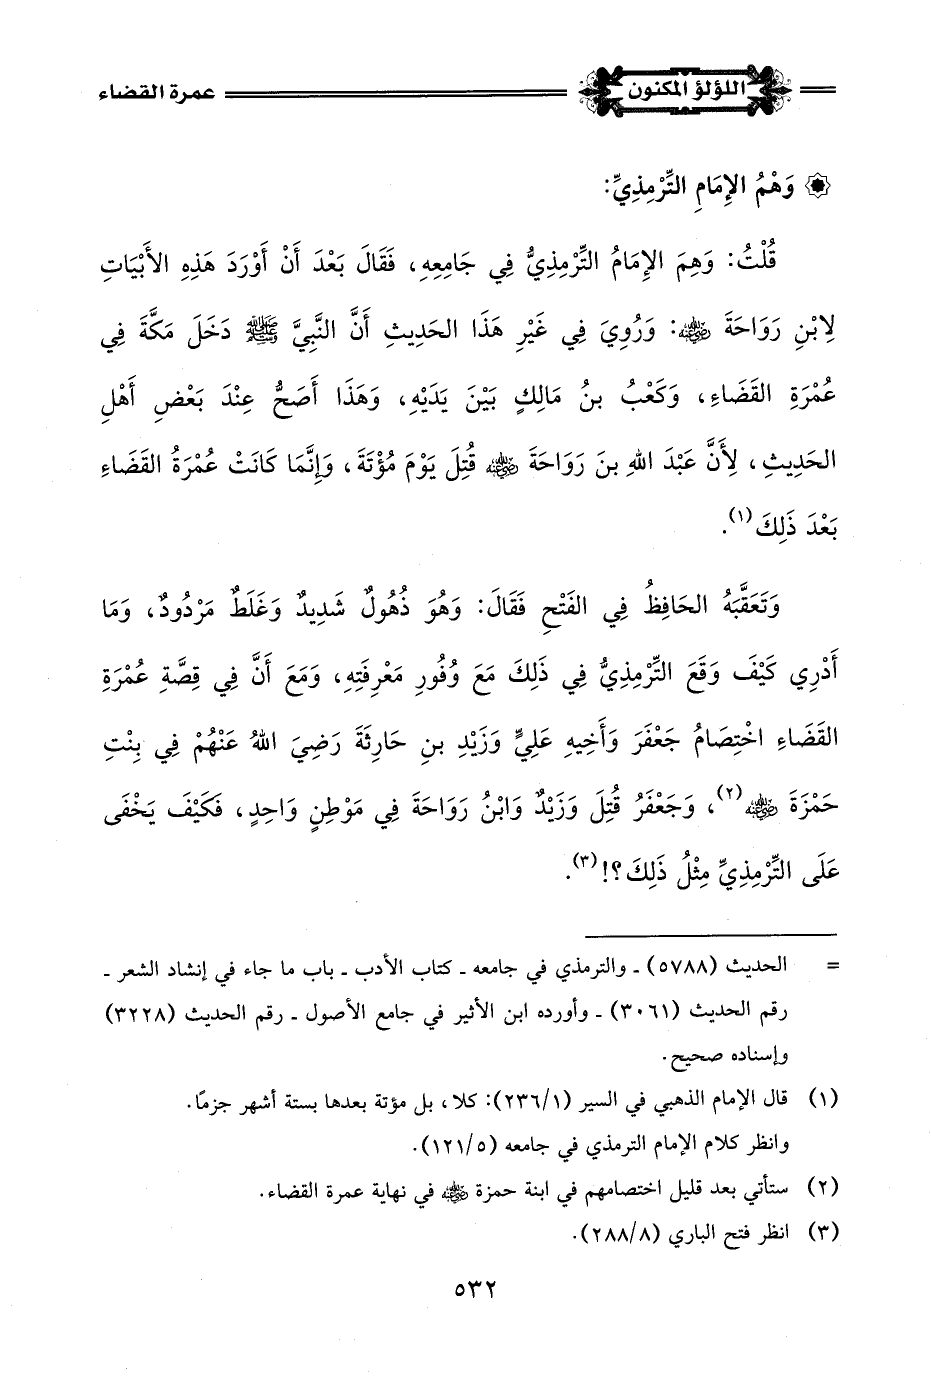 اللؤلؤ المكنون
عمرة القضاء
وَهْمُ الإِمَامِ التِّرْمِذِيِّ:
قُلْتُ: وَهِمَ الإِمَامُ التِّرْمِذِيُّ فِي جَامِعِهِ، فَقَالَ بَعْدَ أَنْ أَوْرَدَ هَذِهِ الأَبْيَاتِ
لِابْنِ رَوَاحَةَ ﵁: وَرُوِيَ فِي غَيْرِ هَذَا الحَدِيثِ أَنَّ النَّبِيَّ ﷺ دَخَلَ مَكَّةَ فِي
عُمْرَةِ القَضَاءِ، وَكَعْبُ بنُ مَالِكٍ بَيْنَ يَدَيْهِ، وَهَذَا أَصَحُّ عِنْدَ بَعْضِ أَهْلِ
الحَدِيثِ، لِأَنَّ عَبْدَ اللهِ بنَ رَوَاحَةَ ﵁ قُتِلَ يَوْمَ مُؤْتَةَ، وَإِنَّمَا كَانَتْ عُمْرَةُ القَضَاءِ
بَعْدَ ذَلِكَ(١).
وَتَعَقَّبَهُ الحَافِظُ فِي الفَتْحِ فَقَالَ: وَهُوَ ذُهُولٌ شَدِيدٌ وَغَلَطٌ مَرْدُودٌ، وَمَا
أَدْرِي كَيْفَ وَقَعَ التِّرْمِذِيُّ فِي ذَلِكَ مَعَ وُفُورِ مَعْرِفَتِهِ، وَمَعَ أَنَّ فِي قِصَّةِ عُمْرَةِ
القَضَاءِ اخْتِصَامُ جَعْفَرَ وَأَخِيهِ عَلِيٍّ وَزَيْدِ بنِ حَارِثَةَ رَضِيَ اللهُ عَنْهُمْ فِي بِنْتِ
حَمْزَةَ ﵁(٢)، وَجَعْفَرُ قُتِلَ وَزَيْدٌ وَابْنُ رَوَاحَةَ فِي مَوْطِنٍ وَاحِدٍ، فَكَيْفَ يَخْفَى
عَلَى التِّرْمِذِيِّ مِثْلُ ذَلِكَ؟!(٣).
= الحديث (٥٧٨٨) ـ والترمذي في جامعه ـ كتاب الأدب ـ باب ما جاء في إنشاد الشعر ـ
رقم الحديث (٣٠٦١) ـ وأورده ابن الأثير في جامع الأصول ـ رقم الحديث (٣٢٢٨)
وإسناده صحيح.
(١) قال الإمام الذهبي في السير (٢٣٦/١): كلا، بل مؤتة بعدها بستة أشهر جزمًا.
وانظر كلام الإمام الترمذي في جامعه (١٢١/٥).
(٢) ستأتي بعد قليل اختصامهم في ابنة حمزة ﵁ في نهاية عمرة القضاء.
(٣) انظر فتح الباري (٢٨٨/٨).
٥٣٢